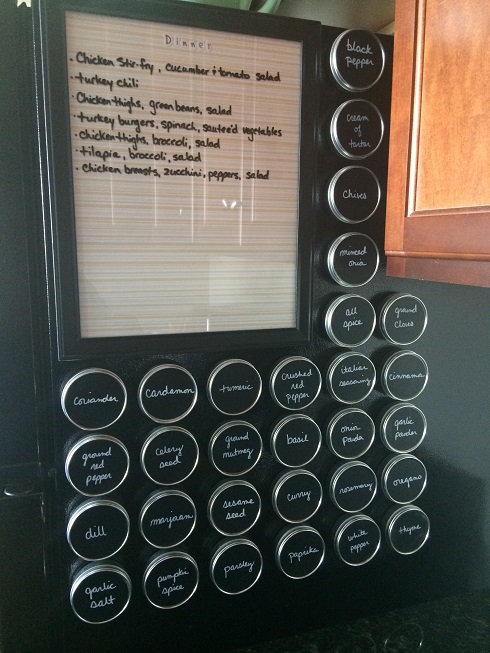 Dinner
• Chicken Stir-fry, cucumber + tomato salad
• turkey chili
• Chicken thighs, green beans, salad
• turkey burgers, spinach, sauteéd vegetables
• Chicken thighs, broccoli, salad
• tilapia, broccoli, salad
• Chicken breasts, zucchini, peppers, salad
black
pepper
cream
of
tartar
Chives
minced
onion
all
spice
ground
cloves
coriander
cardamon
tumeric
crushed
red
pepper
italian
seasoning
cinnamon
ground
red
pepper
celery
seed
ground
nutmeg
basil
onion
powder
garlic
powder
dill
marjoram
sesame
seed
curry
rosemary
oregano
garlic
salt
pumpkin
spice
parsley
paprika
white
pepper
thyme